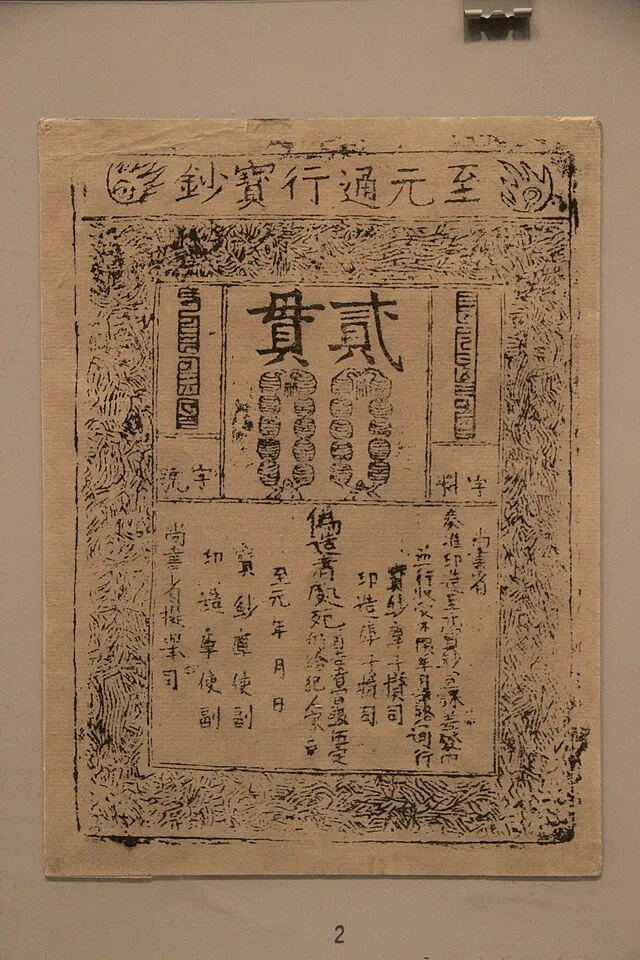 至元通行寶鈔
貳貫
字料
字號
尚書省
奏准印造至元寶鈔宣課差發內
並行收受不限年月諸路通行
寶鈔庫子攢司
印造庫子攢司
偽造者處死
首告者賞銀伍定
仍給犯人家產
至元年月日
寶鈔庫使副
印造庫使副
尚書省提舉司
2